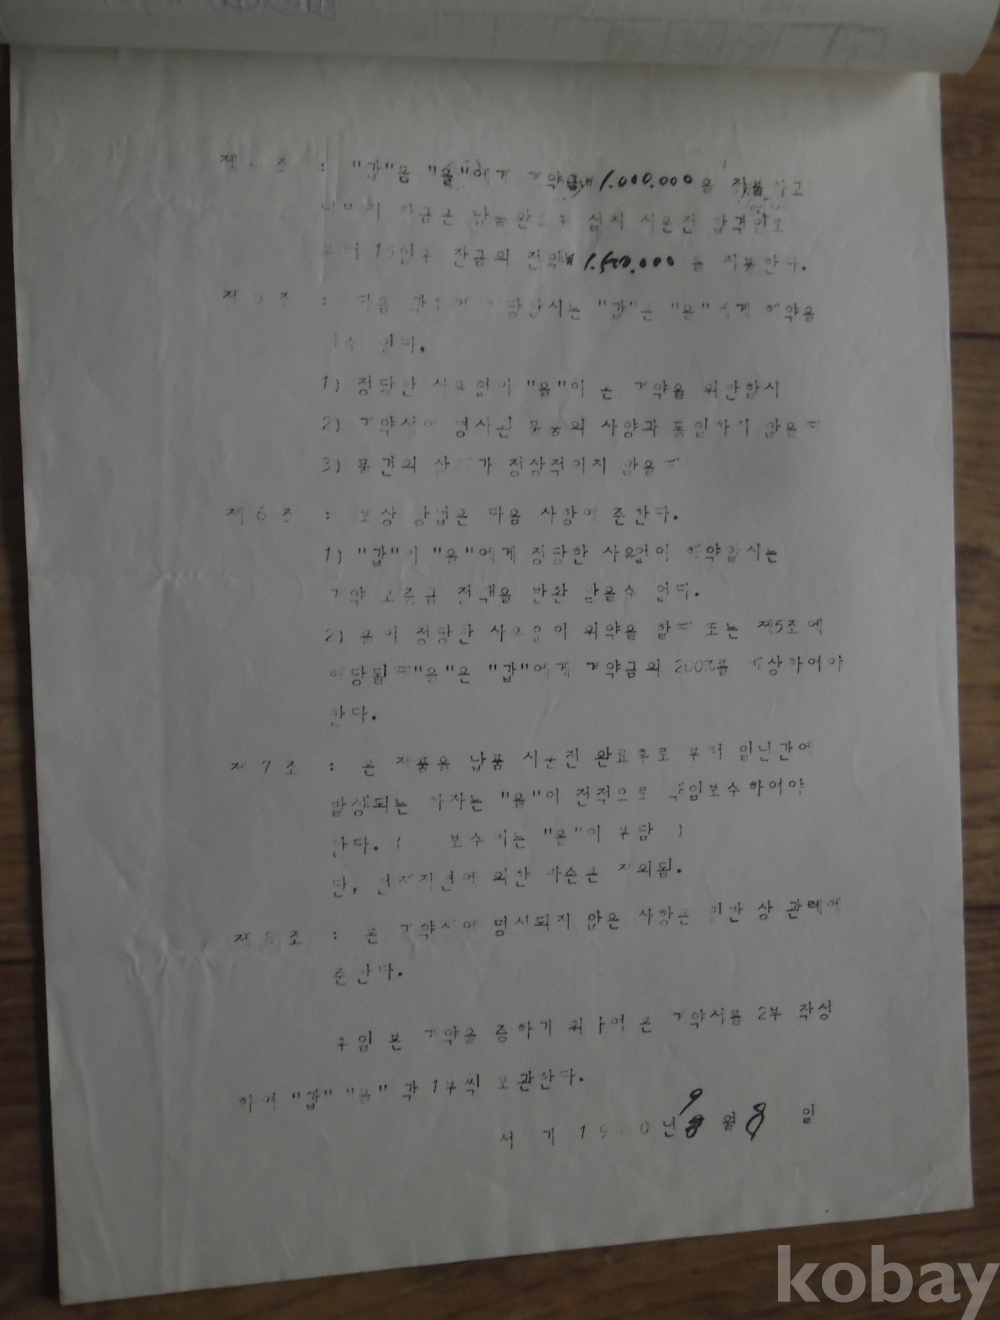 "갑"은 "을"에게 계약금₩1,000,000을 지불하고
나머지 잔금은 납품완료후 설치 시운전 합격일로
부터 15일후 잔금의 전액₩ 을 지불한다.
제5조 : 다음 각 해당할시는 "갑"은 "을"에게 해약을
할수 있다.
1) 정당한 사유없이 "을"이 본 계약을 위반할시
2) 계약서에 명시된 물품의 사양과 동일하지 않을때
3) 물건의 상태가 정상적이지 않을때
제6조 : 보상 방법은 다음 사항에 준한다.
1) "갑"이 "을"에게 정당한 사유없이 해약할시는
계약 보증금 전액을 반환 받을수 없다.
2) 을이 정당한 사유없이 위약을 할때 또는 제5조에
해당될때"을"은 "갑"에게 계약금의 200%를 배상하여야
한다.
제7조 : 본 제품을 납품 시운전 완료후로 부터 일년간에
발생되는 하자는 "을"이 전적으로 책임보수하여야
한다. ( 보수비는 "을"이 부담 )
단, 천재지변에 의한 파손은 제외됨.
제8조 : 본 계약서에 명시되지 않은 사항은 일반 상 관례에
준한다.
후일 본 계약을 증하기 위하여 본 계약서를 2부 작성
하여 "갑" "을" 각 1부씩 보관한다.
서 기 19 0년 9월 8일
kobay